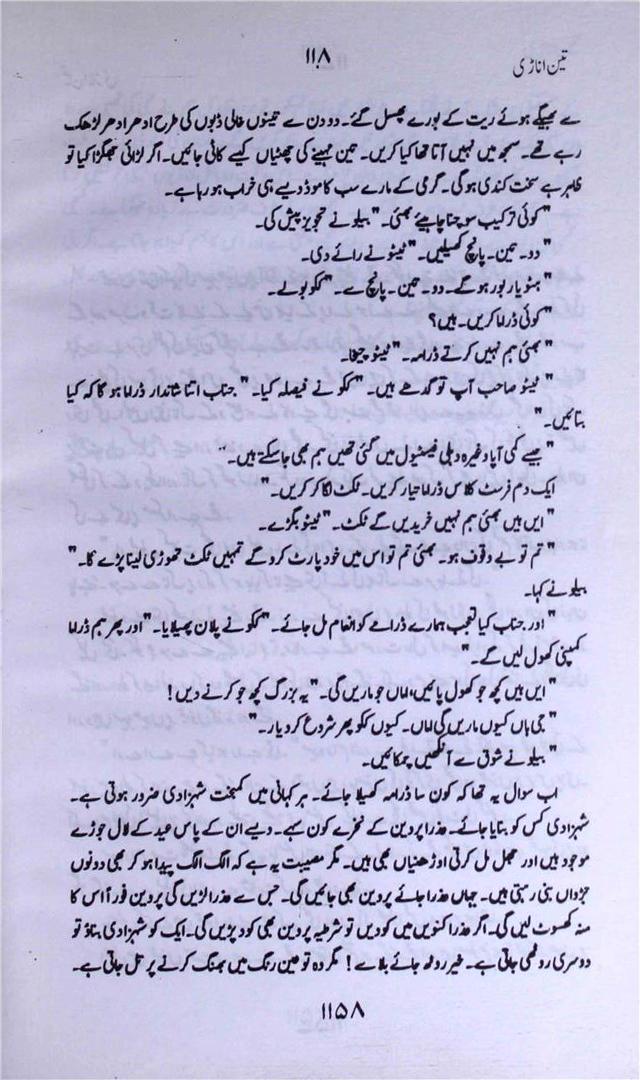 تین اناڑی
۱۱۸
سے بھیگے ہوئے ریت کے بورے پھسل گئے۔ دو دن سے تینوں خالی ڈبوں کی طرح ادھر ادھر لڑھک
رہے تھے۔ سمجھ میں نہیں آتا تھا کیا کریں۔ تین مہینے کی چھٹیاں کیسے کاٹی جائیں۔ اگر لڑائی جھگڑا کیا تو
ظاہر ہے سخت کندی ہوگی۔ گرمی کے مارے سب کا موڈ ویسے ہی خراب ہو رہا ہے۔
"کوئی ترکیب سوچنا چاہیئے بھئی۔" بیلو نے تجویز پیش کی۔
"دو۔ تین۔ پانچ کھیلیں۔" ٹیٹو نے رائے دی۔
"ہٹو یار بور ہو گئے۔ دو۔ تین۔ پانچ سے۔" ککو بولے۔
"کوئی ڈراما کریں۔ ہیں؟
"بھئی ہم نہیں کرتے ڈرامہ۔" ٹیٹو چیخا۔
"ٹیٹو صاحب آپ تو گدھے ہیں۔" ککو نے فیصلہ کیا۔ "جناب اتنا شاندار ڈراما ہو گا کہ کیا
بتائیں۔"
"جیسے گی آپا وغیرہ دہلی فیسٹیول میں گئی تھیں ہم بھی جا سکتے ہیں۔"
ایک دم فرسٹ کلاس ڈراما تیار کریں۔ ٹکٹ لگا کر کریں۔"
"ایں ہیں بھئی ہم نہیں خریدیں گے ٹکٹ۔" ٹیٹو بگڑے۔
"تم تو بے وقوف ہو۔ بھئی تم تو اس میں خود پارٹ کرو گے تمہیں ٹکٹ تھوڑی لینا پڑے گا۔"
بیلو نے کہا۔
"اور جناب کیا تعجب ہمارے ڈرامے کو انعام مل جائے۔" ککو نے پلان پھیلایا۔ "اور پھر ہم ڈراما
کمپنی کھول لیں گے۔"
"ایں ہیں کچھ جو کھول پائیں، اماں جو ماریں گی۔" یہ بزرگ کچھ جو کرنے دیں!
"جی ہاں کیوں ماریں گی اماں۔ کیوں ککو پھر شروع کر دیا ر۔"
"بیلو نے شوق سے آنکھیں چمکائیں۔
اب سوال یہ تھا کہ کون سا ڈرامہ کھیلا جائے۔ ہر کہانی میں کمبخت شہزادی ضرور ہوتی ہے۔
شہزادی کس کو بنایا جائے۔ عذرا پروین کے نخرے کون سہے۔ ویسے ان کے پاس عید کے لال جوڑے
موجود ہیں اور جھل مل کرتی اوڑھنیاں بھی ہیں۔ مگر مصیبت یہ ہے کہ الگ الگ پیدا ہو کر بھی دونوں
جڑواں بنی رہتی ہیں۔ جہاں عذرا جائے پروین بھی جائیں گی۔ جس سے عذرا لڑیں گی پروین فوراً اس کا
منہ کھسوٹ لیں گی۔ اگر عذرا کنویں میں کودیں تو شرطیہ پروین بھی کود پڑیں گی۔ ایک کو شہزادی بناؤ تو
دوسری روٹھی جاتی ہے۔ خیر روٹھ جائے بلا سے! مگر وہ تو عین رنگ میں بھنگ کرنے پر تل جاتی ہے۔
۱۱۵۸